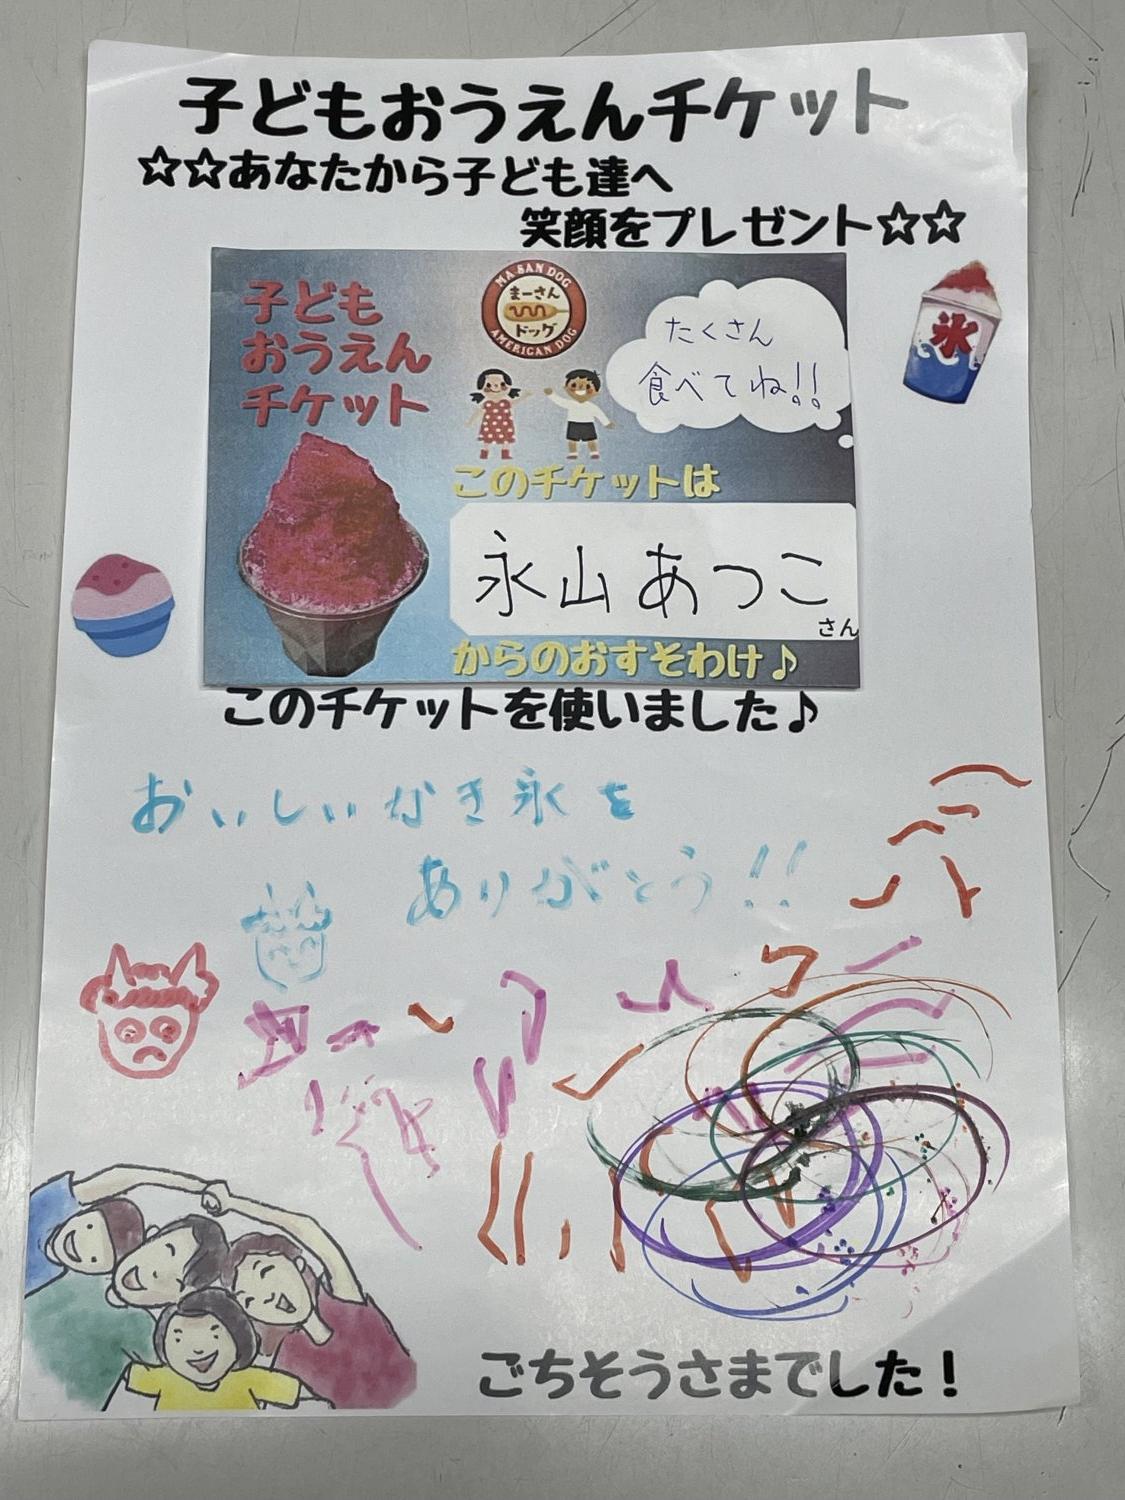 子どもおうえんチケット
☆☆あなたから子ども達へ
笑顔をプレゼント☆☆
子ども
おうえん
チケット
MA SAN DOG
まーさん
ドッグ
AMERICAN DOG
たくさん
食べてね!!
氷
このチケットは
永山あつこ
さん
からのおすそわけ♪
このチケットを使いました♪
おいしいかき氷を
ありがとう!!
ごちそうさまでした!